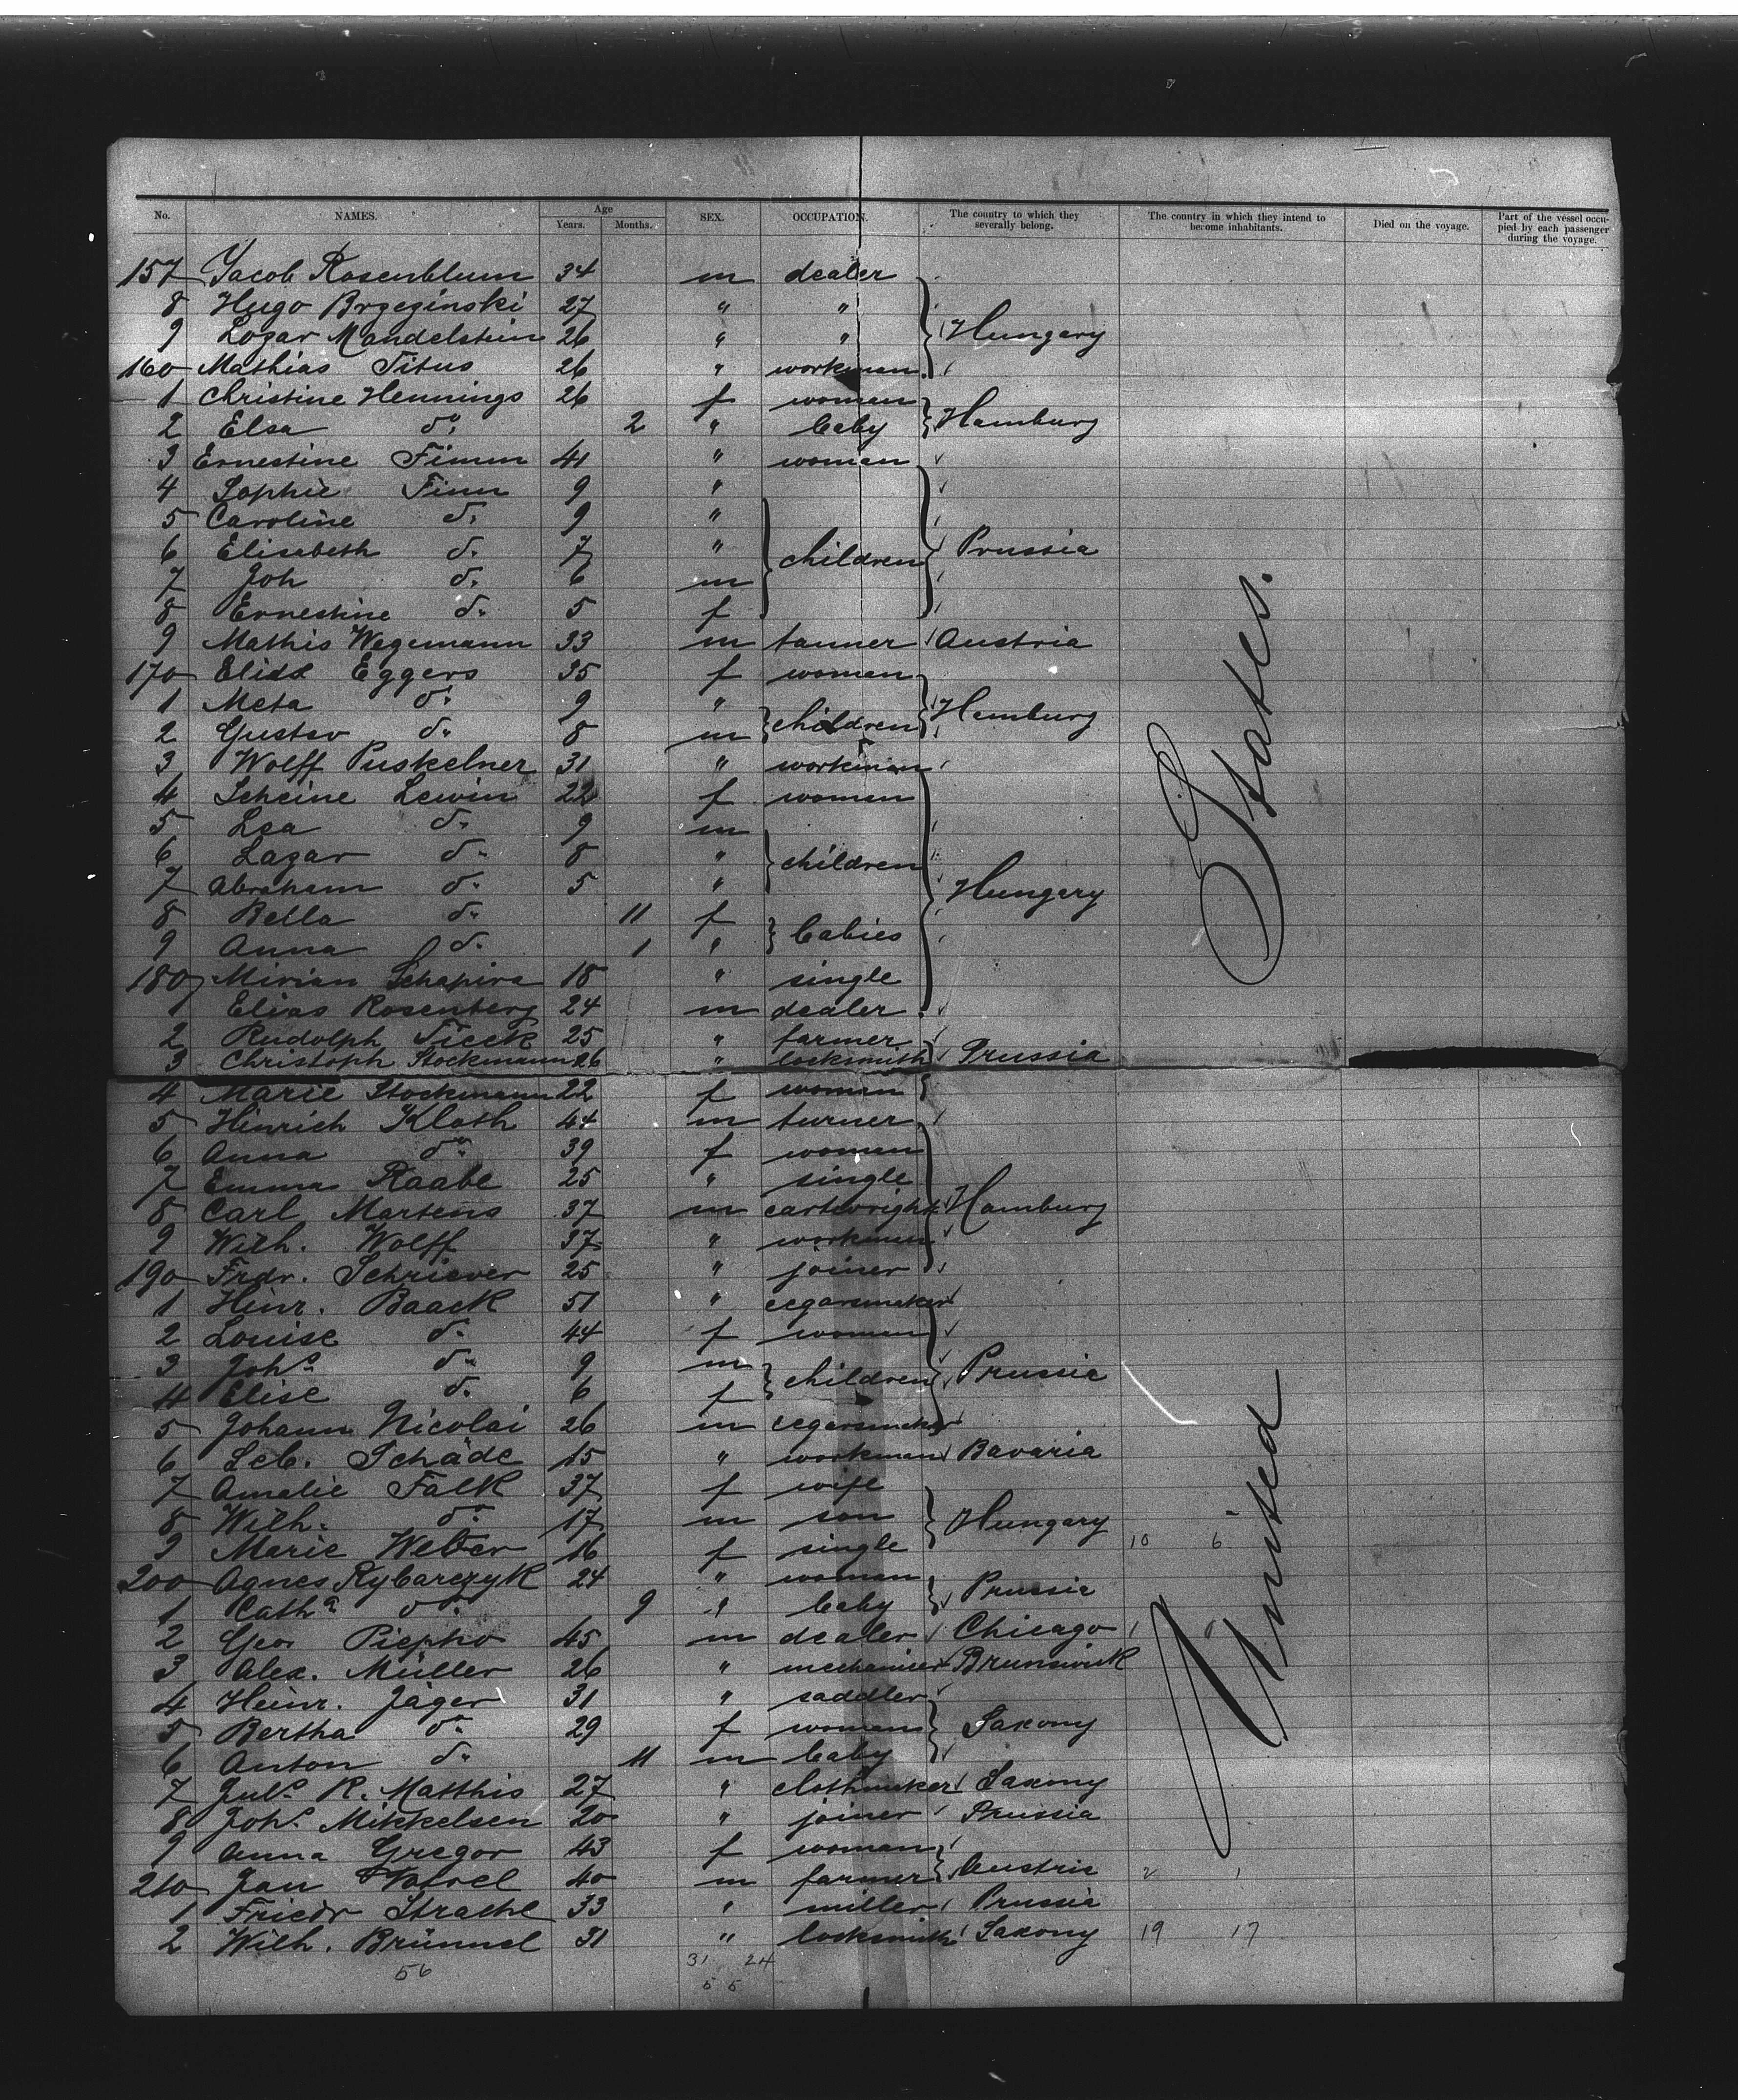 No. NAMES. Age Years. Months. SEX. OCCUPATION. The country to which they severally belong. The country in which they intend to become inhabitants. Died on the voyage. Part of the vessel occupied by each passenger during the voyage.
157 Jacob Rosenblum 34 m dealer
8 Hugo Brzezinski 27 " "
9 Lozar Mandelstein 26 " " Hungary
160 Mathias Titus 26 " workman
1 Christine Hennings 26 f woman
2 Elsa do 2 " baby Hamburg
3 Ernestine Timm 41 " woman
4 Sophie Timm 9 "
5 Caroline do 9 "
6 Elisabeth do 7 " children Prussia
7 Joh do 6 m
8 Ernestine do 5 f
9 Mathis Wegemann 33 m tanner Austria
170 Elise Eggers 35 f woman
1 Meta do 9 "
2 Gustav do 8 m children Hamburg
3 Wolff Puskelner 31 " workman
4 Scheine Lewin 22 f woman
5 Lea do 9 m
6 Lazar do 8 " children
7 Abraham do 5 " Hungary
8 Bella do 11 f
9 Anna do 1 " babies
180 Mirian Schapira 18 " single
1 Elias Rosenberg 24 m dealer
2 Rudolph Tieck 25 " farmer
3 Christoph Stockmann 26 " locksmith Prussia
4 Marie Stockmann 22 f woman
5 Hinrich Kloth 44 m turner
6 Anna do 39 f woman
7 Emma Raabe 25 " single
8 Carl Martens 37 m cartwright Hamburg
9 Wilh. Wolff 37 " workman
190 Frdr. Schriever 25 " joiner
1 Hinr. Baack 51 " cegarsmaker
2 Louise do 44 f woman
3 Johs do 9 m
4 Elise do 6 f children Prussia
5 Johann Nicolai 26 m cegarsmaker
6 Seb. Schäde 15 " workman Bavaria
7 Amalie Falk 37 f wife
8 Wilh. do 17 m son Hungary
9 Marie Weber 16 f single 10 6
200 Agnes Rybarczyk 24 " woman
1 Catha do 9 " baby Prussia
2 Geo. Piepho 45 m dealer Chicago 1 0
3 Alex. Müller 26 " mechanier Brunswick
4 Heinr. Jäger 31 " saddler
5 Bertha do 29 f woman Saxony
6 Anton do 11 m baby
7 Juls R. Matthis 27 " clothmaker Saxony
8 Johs Mikkelsen 20 " joiner Prussia
9 Anna Gregor 43 f woman
210 Jan 40 m farmer Austria 2 1
1 Friedr Strachl 33 " miller Prussia
2 Wilh. Brünnel 31 " locksmith Saxony 19 17
56 31 24
55
United States.